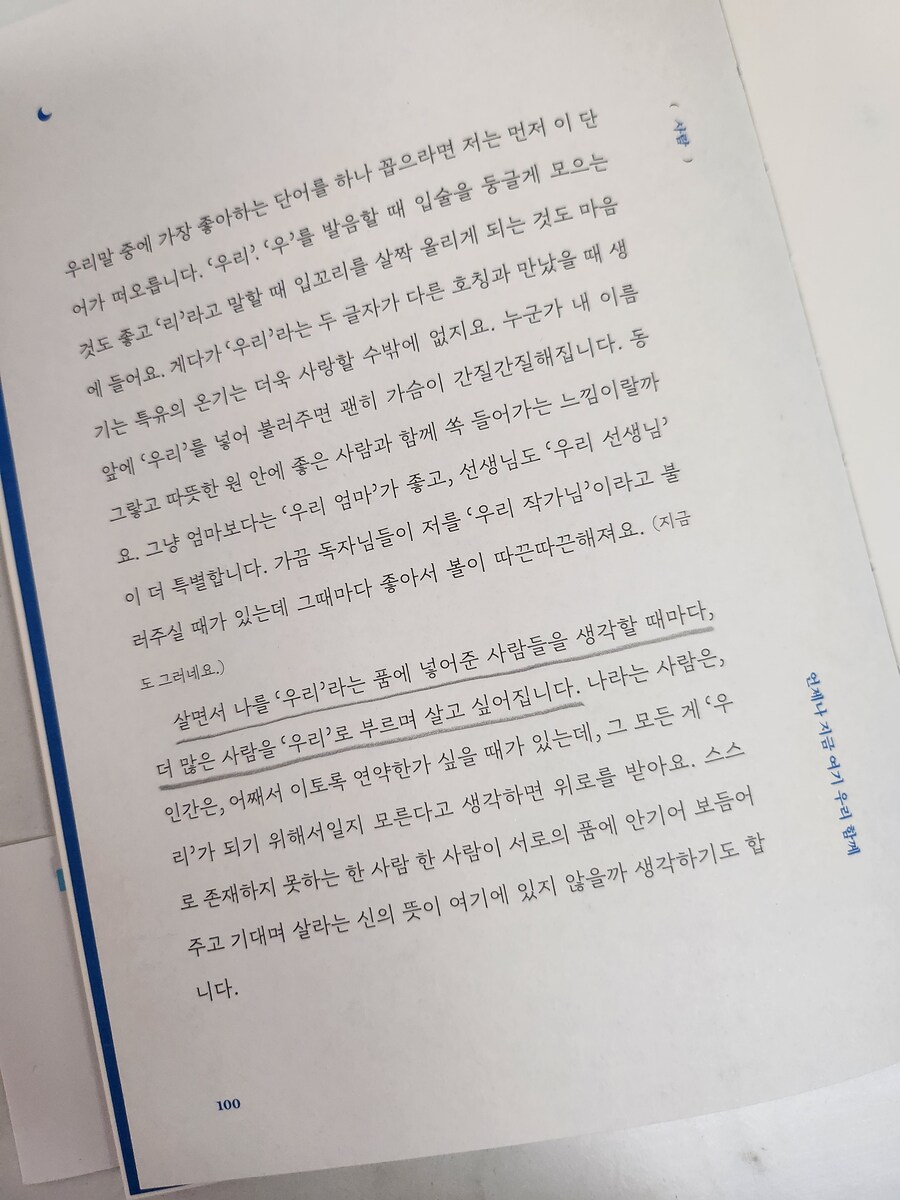 ( 사랑 )
우리말 중에 가장 좋아하는 단어를 하나 꼽으라면 저는 먼저 이 단
어가 떠오릅니다. ‘우리’. ‘우’를 발음할 때 입술을 둥글게 모으는
것도 좋고 ‘리’라고 말할 때 입꼬리를 살짝 올리게 되는 것도 마음
에 들어요. 게다가 ‘우리’라는 두 글자가 다른 호칭과 만났을 때 생
기는 특유의 온기는 더욱 사랑할 수밖에 없지요. 누군가 내 이름
앞에 ‘우리’를 넣어 불러주면 괜히 가슴이 간질간질해집니다. 동
그랗고 따뜻한 원 안에 좋은 사람과 함께 쏙 들어가는 느낌이랄까
요. 그냥 엄마보다는 ‘우리 엄마’가 좋고, 선생님도 ‘우리 선생님’
이 더 특별합니다. 가끔 독자님들이 저를 ‘우리 작가님’이라고 불
러주실 때가 있는데 그때마다 좋아서 볼이 따끈따끈해져요. (지금
도 그러네요.)
살면서 나를 ‘우리’라는 품에 넣어준 사람들을 생각할 때마다,
더 많은 사람을 ‘우리’로 부르며 살고 싶어집니다. 나라는 사람은,
인간은, 어째서 이토록 연약한가 싶을 때가 있는데, 그 모든 게 ‘우
리’가 되기 위해서일지 모른다고 생각하면 위로를 받아요. 스스
로 존재하지 못하는 한 사람 한 사람이 서로의 품에 안기어 보듬어
주고 기대며 살라는 신의 뜻이 여기에 있지 않을까 생각하기도 합
니다.
언제나 지금 여기 우리 함께
100